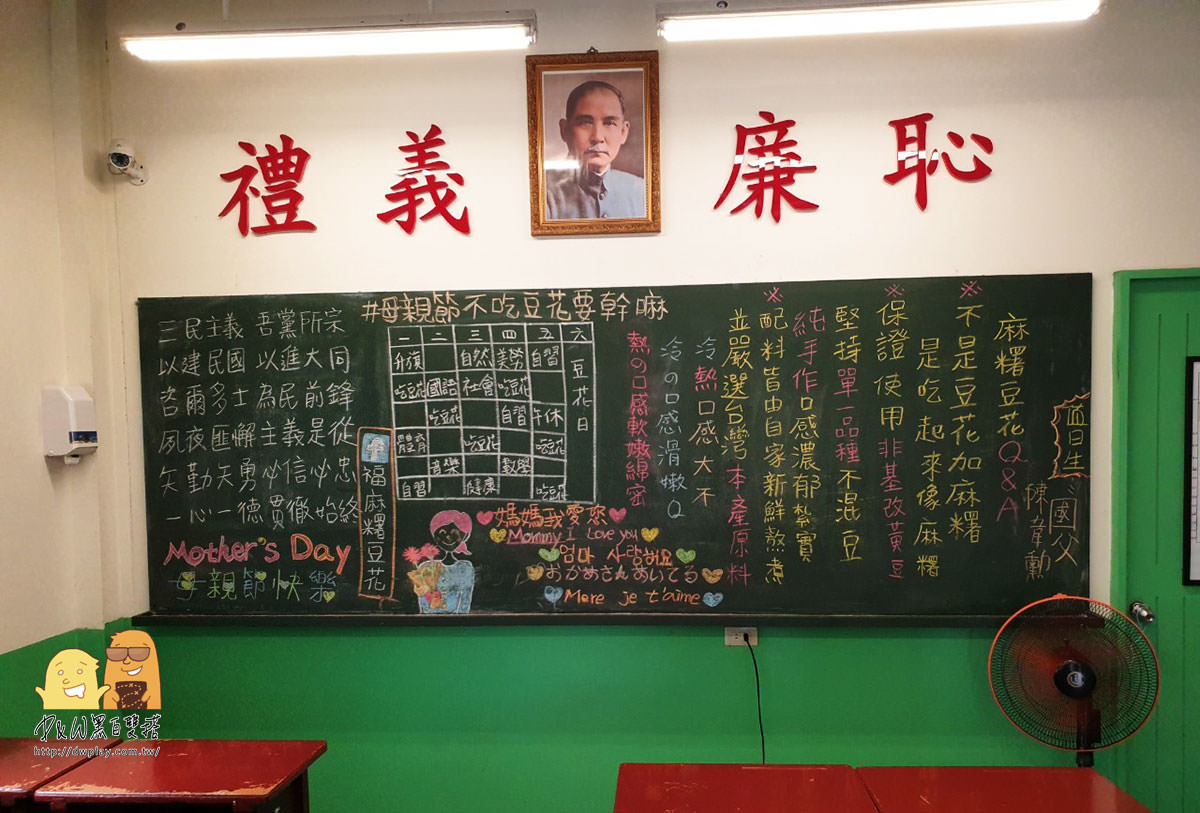 禮義廉恥
#母親節不吃豆花要幹嘛
三民主義 吾黨所宗
以建民國 以進大同
咨爾多士 為民前鋒
夙夜匪懈 主義是從
矢勤矢勇 必信必忠
一心一德 貫徹始終
Mother's Day
母親節快樂
福麻糬豆花
一 二 三 四 五 六
升旗 自然 美勞 自習
吃豆花 國語 社會 吃豆花
吃豆花 自習 午休
體育 吃豆花 吃豆花
音樂 數學
自習 健康 吃豆花
豆花日
媽媽我愛您
Mommy I love you
엄마 사랑해요
おかあさんあいてる
Mere je t'aime
值日生:
國父
陳韋勳
麻糬豆花Q&A
※不是豆花加麻糬
是吃起來像麻糬
※保證使用非基改黃豆
堅持單一品種不混豆
純手作口感濃郁紮實
※配料皆由自家新鮮熬煮
並嚴選台灣本產原料
冷熱口感大不
冷の口感滑嫩Q
熱の口感軟嫩綿密
D&W黑白雙搭
http://dwplay.com.tw/